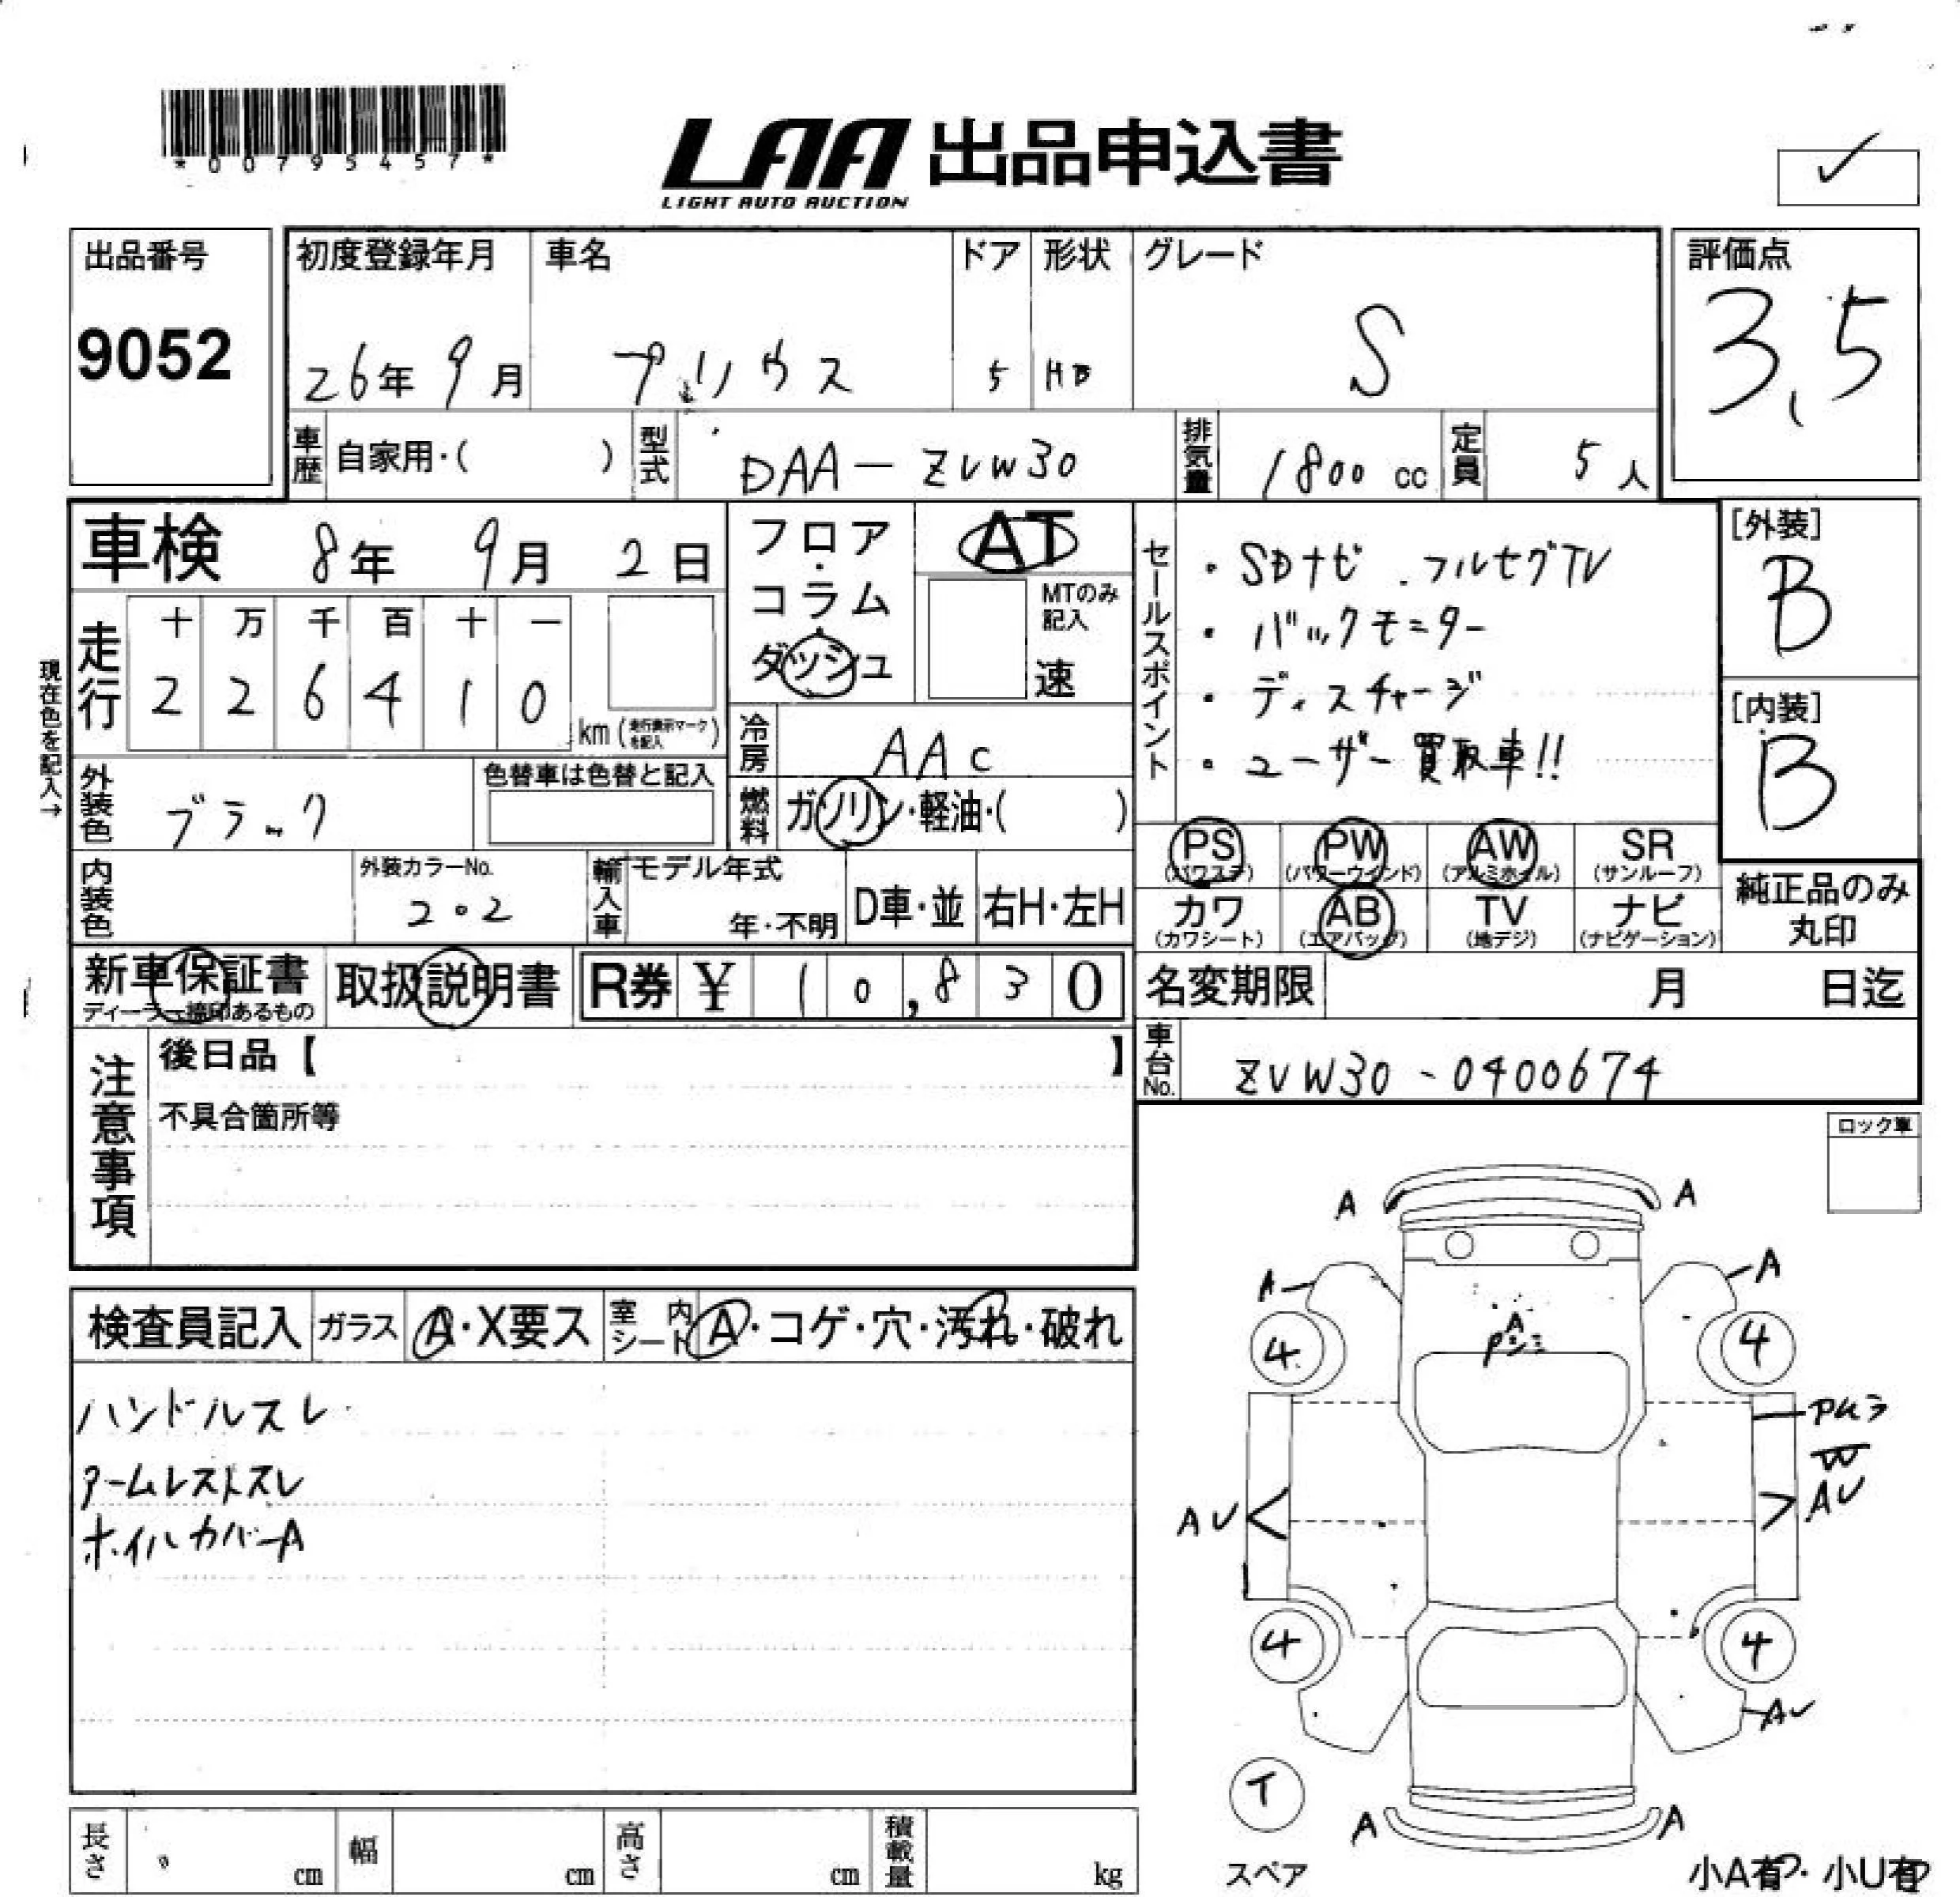 *00795457*
LAA 出品申込書
LIGHT AUTO AUCTION
出品番号
9052
初度登録年月
26年 9月
車名
プリウス
ドア
5
形状
HB
グレード
S
評価点
3.5
車歴 自家用・( )
型式 DAA-ZVW30
排気量 1800 cc
定員 5人
車検 8年 9月 2日
フロア・コラム・ダッシュ
AT
MTのみ記入
速
セールスポイント
・SDナビ .フルセグTV
・バックモニター
・ディスチャージ
・ユーザー買取車!!
[外装]
B
[内装]
B
現在色を記入→
走行
十 万 千 百 十 一
2 2 6 4 1 0
km (走行表示マークを記入)
冷房 AAC
外装色 ブラック
色替車は色替と記入
燃料 ガソリン・軽油・( )
PS (パワステ)
PW (パワーウインド)
AW (アルミホイル)
SR (サンルーフ)
カワ (カワシート)
AB (エアバック)
TV (地デジ)
ナビ (ナビゲーション)
純正品のみ丸印
内装色
外装カラーNo.
202
輸入車
モデル年式
年・不明
D車・並
右H・左H
新車保証書
ディーラー捺印あるもの
取扱説明書
R券 ¥ 10,830
名変期限 月 日迄
注意事項
後日品【 】
不具合箇所等
車台No. ZVW30-0400674
ロック車
検査員記入
ガラス A・X要ス
室内シート A・コゲ・穴・汚れ・破れ
ハンドルスレ
アームレストスレ
ホイルカバーA
A A
A A
A
4 4
AU
AU
4 4
AU
T
スペア
A A
小A有・小U有
長さ cm
幅 cm
高さ cm
積載量 kg